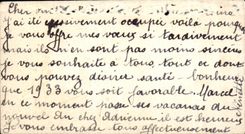 Cher
j'ai été occupée voilà pourquoi
je vous offre mes vœux si tardivement
mais ils n'en sont pas moins sincères
je vous souhaite à tous tout ce dont
vous pouvez désirer santé bonheur
que 1933 vous soit favorable Marcel
en ce moment passe ses vacances du
nouvel an chez il est
je vous embrasse tous affectueusement